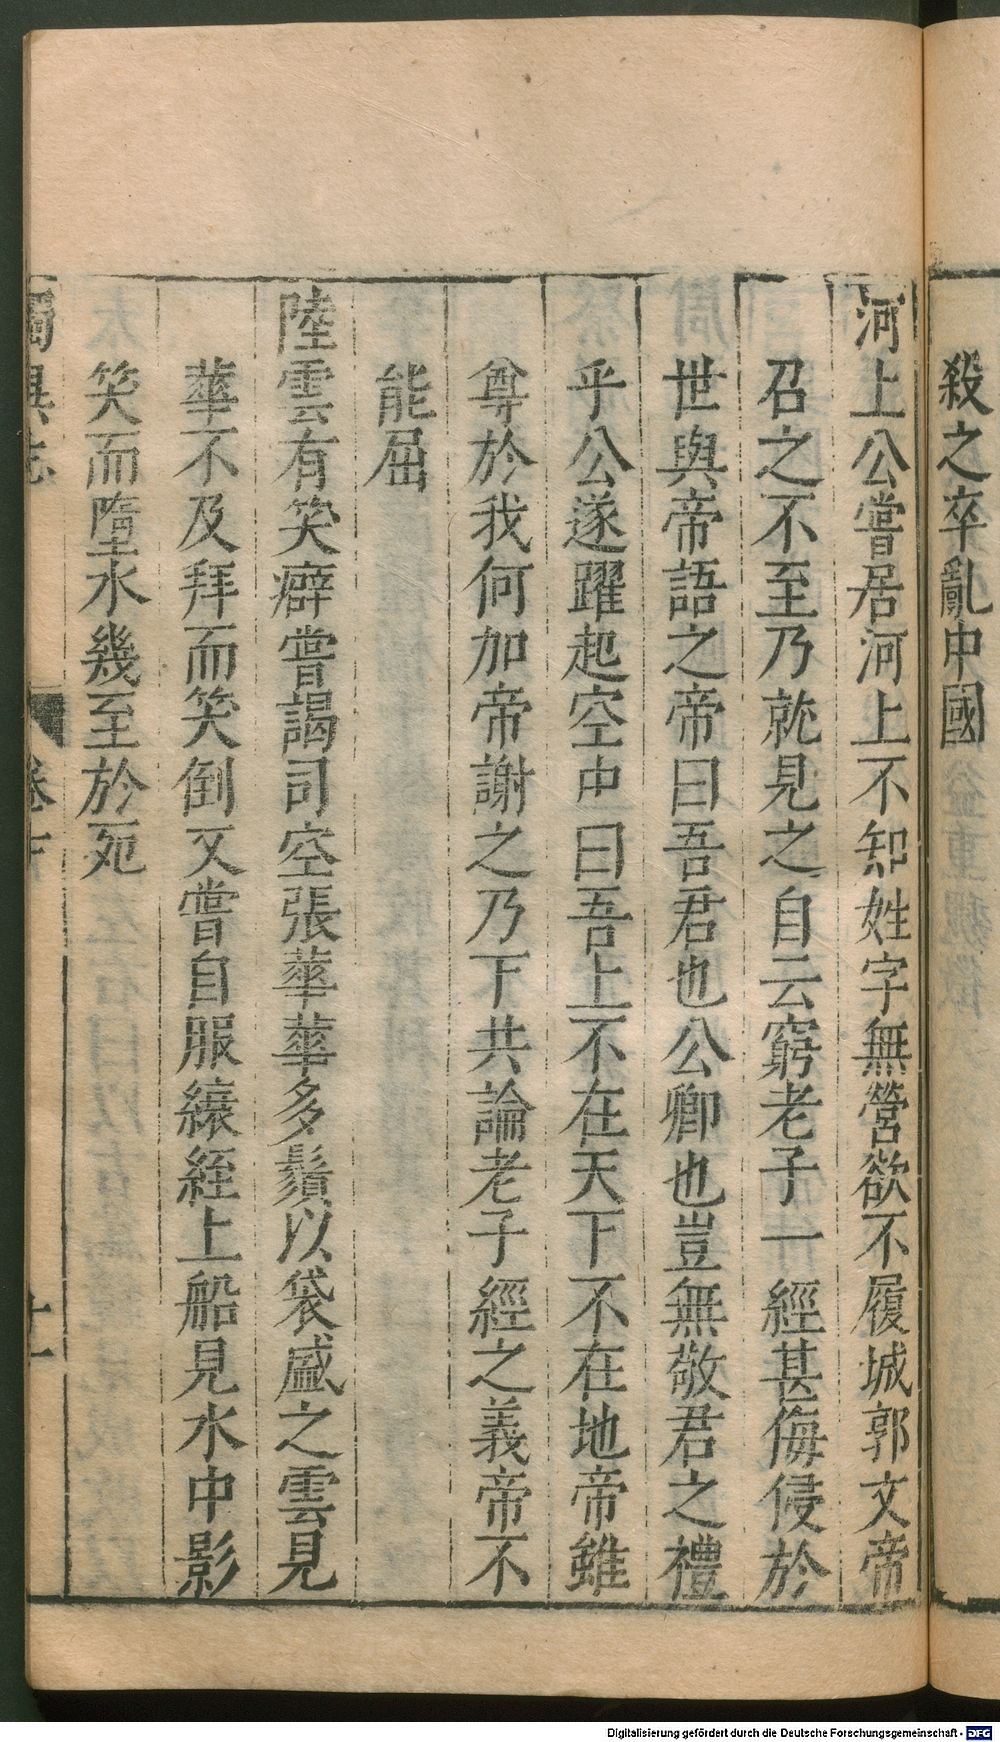 殺之卒亂中國
河上公嘗居河上不知姓字無營欲不履城郭文帝
召之不至乃就見之自云窮老子一經甚侮侵於
世與帝語之帝曰吾君也公卿也豈無敬君之禮
乎公遂躍起空中曰吾上不在天下不在地帝雖
尊於我何加帝謝之乃下共論老子經之義帝不
能屈
陸雲有笑癖嘗謁司空張華華多鬚以袋盛之雲見
華不及拜而笑倒又嘗自服縗絰上船見水中影
笑而墮水幾至於死
獨異志
卷下
十一
Digitalisierung gefördert durch die Deutsche Forschungsgemeinschaft - DFG